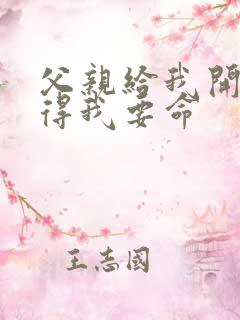 父親給我開
得我要命
王志國